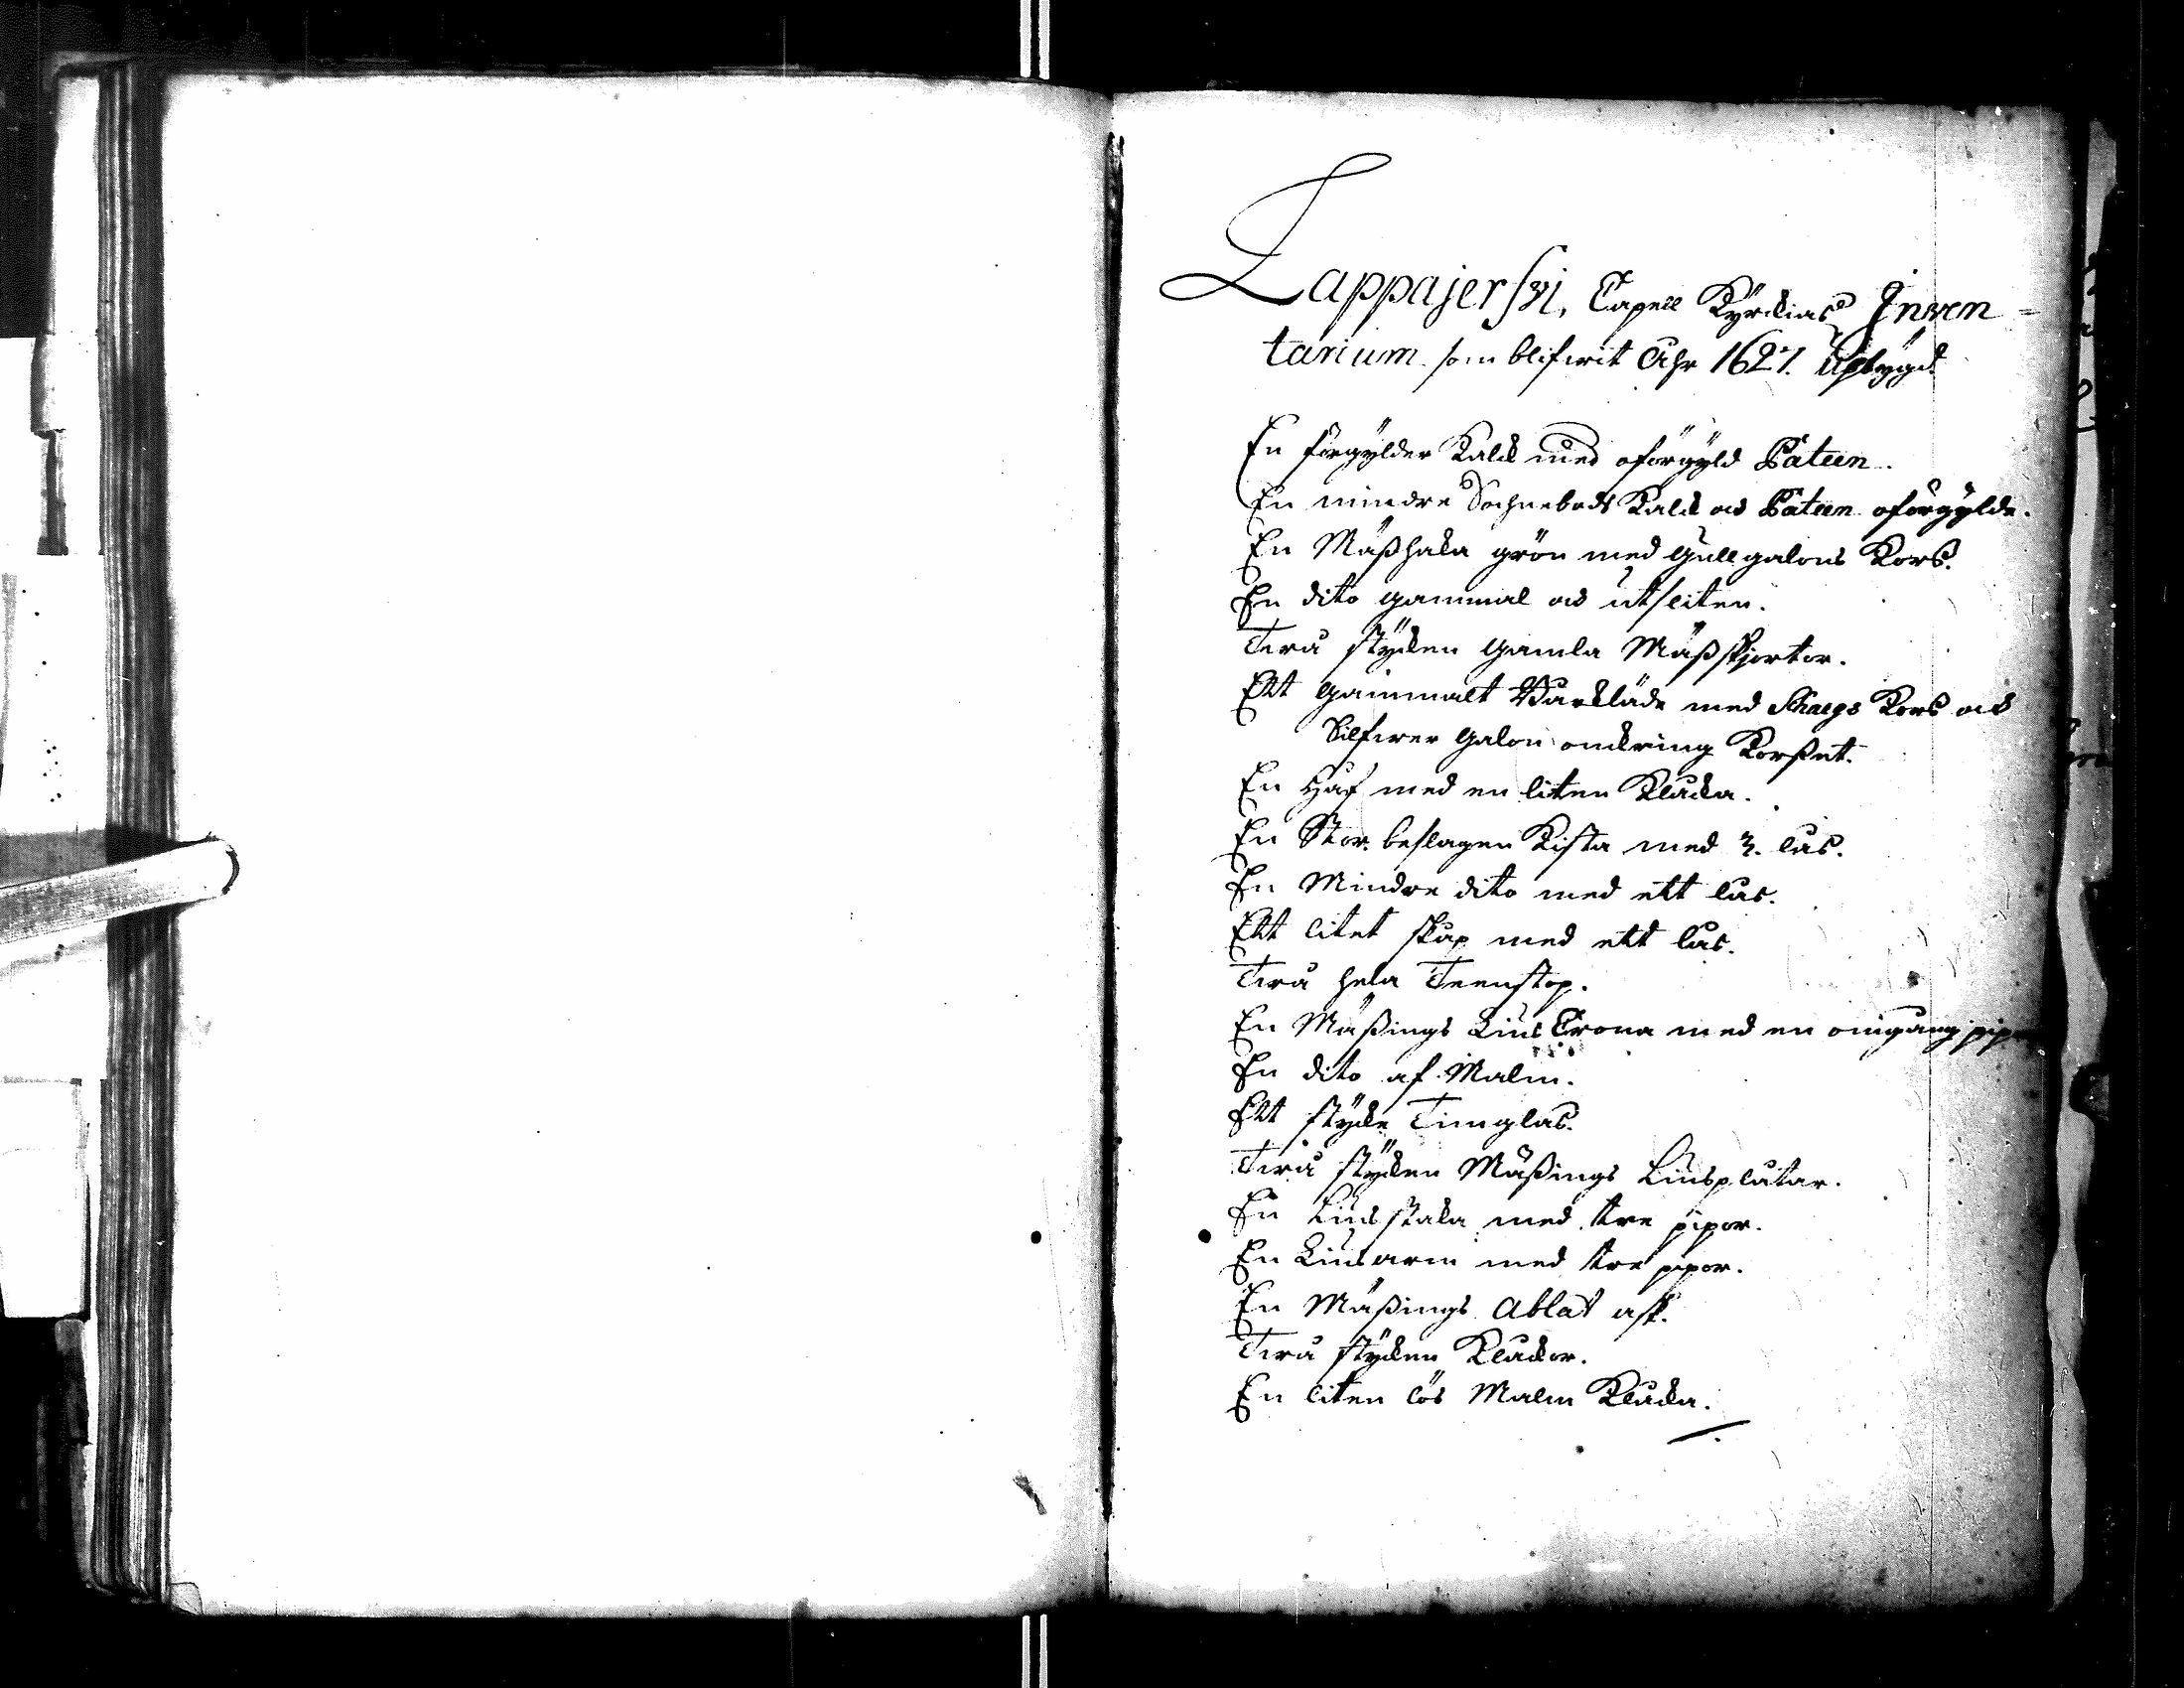 Lappajerfvi, Capell Kyrckias Inven=
tarium som blifwit Åhr 1627. Upbygd
En förgylder Kalck med oförgyld Pateen.
En mindre Sochnebods Kalck och Pateen oförgylde.
En Mäßhaka grön med gullgalons Kors.
En dito gammal och utsliten.
Twå stycken gamla Mäßskjortor.
Ett gammalt Warkläde med Schaegs Kors och
Silfwer galon omkring Korset.
En Håf med en liten Klåcka.
En Stor beslagen Kista med 3. lås.
En Mindre dito med ett lås.
Ett litet skåp med ett lås.
Twå hela Teenstop.
En Mäßings Lius Crona med en omgång pipor
En dito af Malm.
Ett stycke Timglas.
Twå stycken Mäßings Liusplåtar.
En Liusstaka med tre pipor.
En Liusarm med tre pipor.
En Mäßings Ablat ask.
Twå stycken Klåckor.
En liten lös Malm Klåcka.